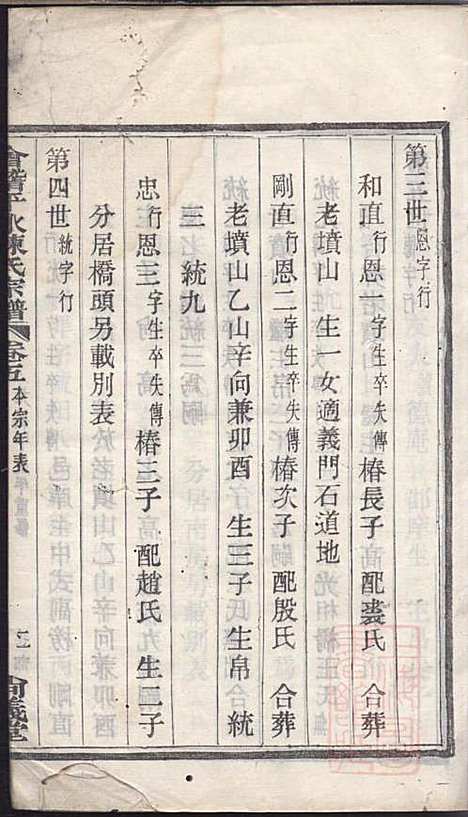 第三世恩字行
和直行恩一字生卒失傳椿長子 配裘氏 合葬
老墳山 生一女適義門石道地
剛直行恩二字生卒失傳椿次子 配殷氏 合葬
老墳山乙山辛向兼卯酉 生三子氏生帛 統
三 統九
忠行恩三字生卒失傳椿三子 配趙氏 生二子
分居橋頭另載別表
第四世統字行
會稽平水陳氏宗譜 卷五 本宗年表